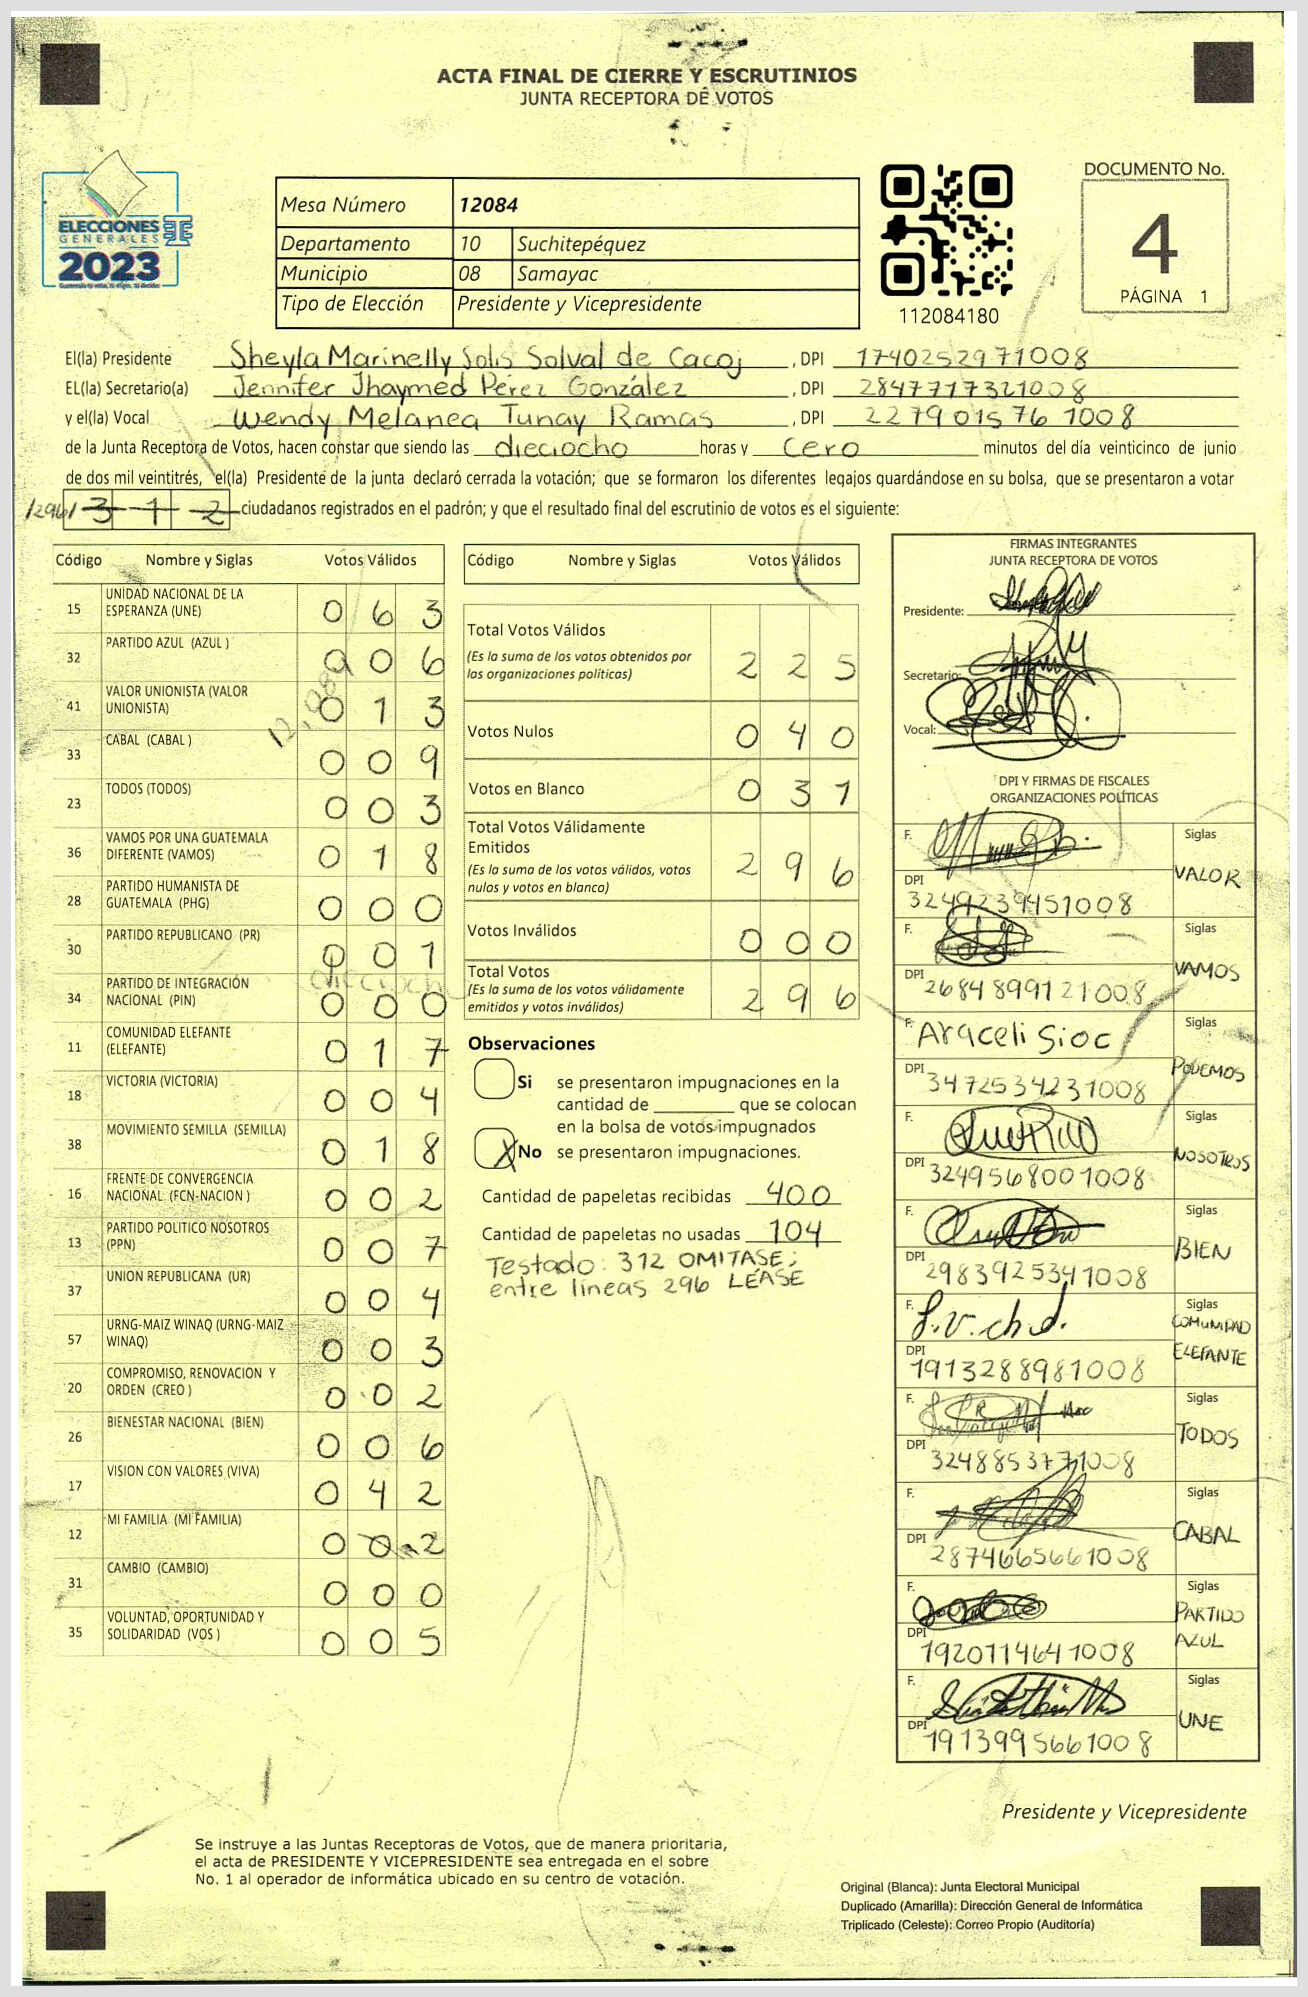 ACTA FINAL DE CIERRE Y ESCRUTINIOS
JUNTA RECEPTORA DE VOTOS
ELECCIONES
GENERALES
2023
Mesa Número 12084
Departamento 10 Suchitepéquez
Municipio 08 Samayac
Tipo de Elección Presidente y Vicepresidente
112084180
DOCUMENTO No.
4
PÁGINA 1
El(la) Presidente Sheyla Marinelly Solis Solval de Cacoj, DPI 1740252971008
EL(la) Secretario(a) Jennifer Jhaymed Pérez González, DPI 2847717321008
y el(la) Vocal Wendy Melanea Tunay Ramas, DPI 2279015761008
de la Junta Receptora de Votos, hacen constar que siendo las dieciocho horas y cero minutos del día veinticinco de junio
de dos mil veintitrés, el(la) Presidente de la junta declaró cerrada la votación; que se formaron los diferentes legajos guardándose en su bolsa, que se presentaron a votar
/296/ 312 ciudadanos registrados en el padrón; y que el resultado final del escrutinio de votos es el siguiente:
Código Nombre y Siglas Votos Válidos
15 UNIDAD NACIONAL DE LA ESPERANZA (UNE) 0 6 3
32 PARTIDO AZUL (AZUL ) 0 0 6
41 VALOR UNIONISTA (VALOR UNIONISTA) 0 1 3
33 CABAL (CABAL ) 0 0 9
23 TODOS (TODOS) 0 0 3
36 VAMOS POR UNA GUATEMALA DIFERENTE (VAMOS) 0 1 8
28 PARTIDO HUMANISTA DE GUATEMALA (PHG) 0 0 0
30 PARTIDO REPUBLICANO (PR) 0 0 1
34 PARTIDO DE INTEGRACIÓN NACIONAL (PIN) 0 0 0
11 COMUNIDAD ELEFANTE (ELEFANTE) 0 1 7
18 VICTORIA (VICTORIA) 0 0 4
38 MOVIMIENTO SEMILLA (SEMILLA) 0 1 8
16 FRENTE DE CONVERGENCIA NACIONAL (FCN-NACION ) 0 0 2
13 PARTIDO POLITICO NOSOTROS (PPN) 0 0 7
37 UNION REPUBLICANA (UR) 0 0 4
57 URNG-MAIZ WINAQ (URNG-MAIZ WINAQ) 0 0 3
20 COMPROMISO, RENOVACION Y ORDEN (CREO ) 0 0 2
26 BIENESTAR NACIONAL (BIEN) 0 0 6
17 VISION CON VALORES (VIVA) 0 4 2
12 MI FAMILIA (MI FAMILIA) 0 0 2
31 CAMBIO (CAMBIO) 0 0 0
35 VOLUNTAD, OPORTUNIDAD Y SOLIDARIDAD (VOS ) 0 0 5
Código Nombre y Siglas Votos Válidos
Total Votos Válidos 2 2 5
(Es la suma de los votos obtenidos por
las organizaciones políticas)
Votos Nulos 0 4 0
Votos en Blanco 0 3 1
Total Votos Válidamente
Emitidos 2 9 6
(Es la suma de los votos válidos, votos
nulos y votos en blanco)
Votos Inválidos 0 0 0
Total Votos 2 9 6
(Es la suma de los votos válidamente
emitidos y votos inválidos)
Observaciones
Si se presentaron impugnaciones en la
cantidad de ________ que se colocan
en la bolsa de votos impugnados
X No se presentaron impugnaciones.
Cantidad de papeletas recibidas 400
Cantidad de papeletas no usadas 104
Testado: 312 OMITASE;
entre líneas 296 LÉASE
FIRMAS INTEGRANTES
JUNTA RECEPTORA DE VOTOS
Presidente:
Secretario:
Vocal:
DPI Y FIRMAS DE FISCALES
ORGANIZACIONES POLÍTICAS
F. Siglas VALOR
DPI 3249239451008
F. Siglas VAMOS
DPI 2684899121008
F. Araceli Sioc Siglas PODEMOS
DPI 3472534231008
F. Siglas NOSOTROS
DPI 3249568001008
F. Siglas BIEN
DPI 2983925341008
F. Siglas COMUNIDAD ELEFANTE
DPI 1913288981008
F. Siglas TODOS
DPI 3248853771008
F. Siglas CABAL
DPI 2874665661008
F. Siglas PARTIDO AZUL
DPI 1920114641008
F. Siglas UNE
DPI 1913995661008
Presidente y Vicepresidente
Se instruye a las Juntas Receptoras de Votos, que de manera prioritaria,
el acta de PRESIDENTE Y VICEPRESIDENTE sea entregada en el sobre
No. 1 al operador de informática ubicado en su centro de votación.
Original (Blanca): Junta Electoral Municipal
Duplicado (Amarilla): Dirección General de Informática
Triplicado (Celeste): Correo Propio (Auditoría)